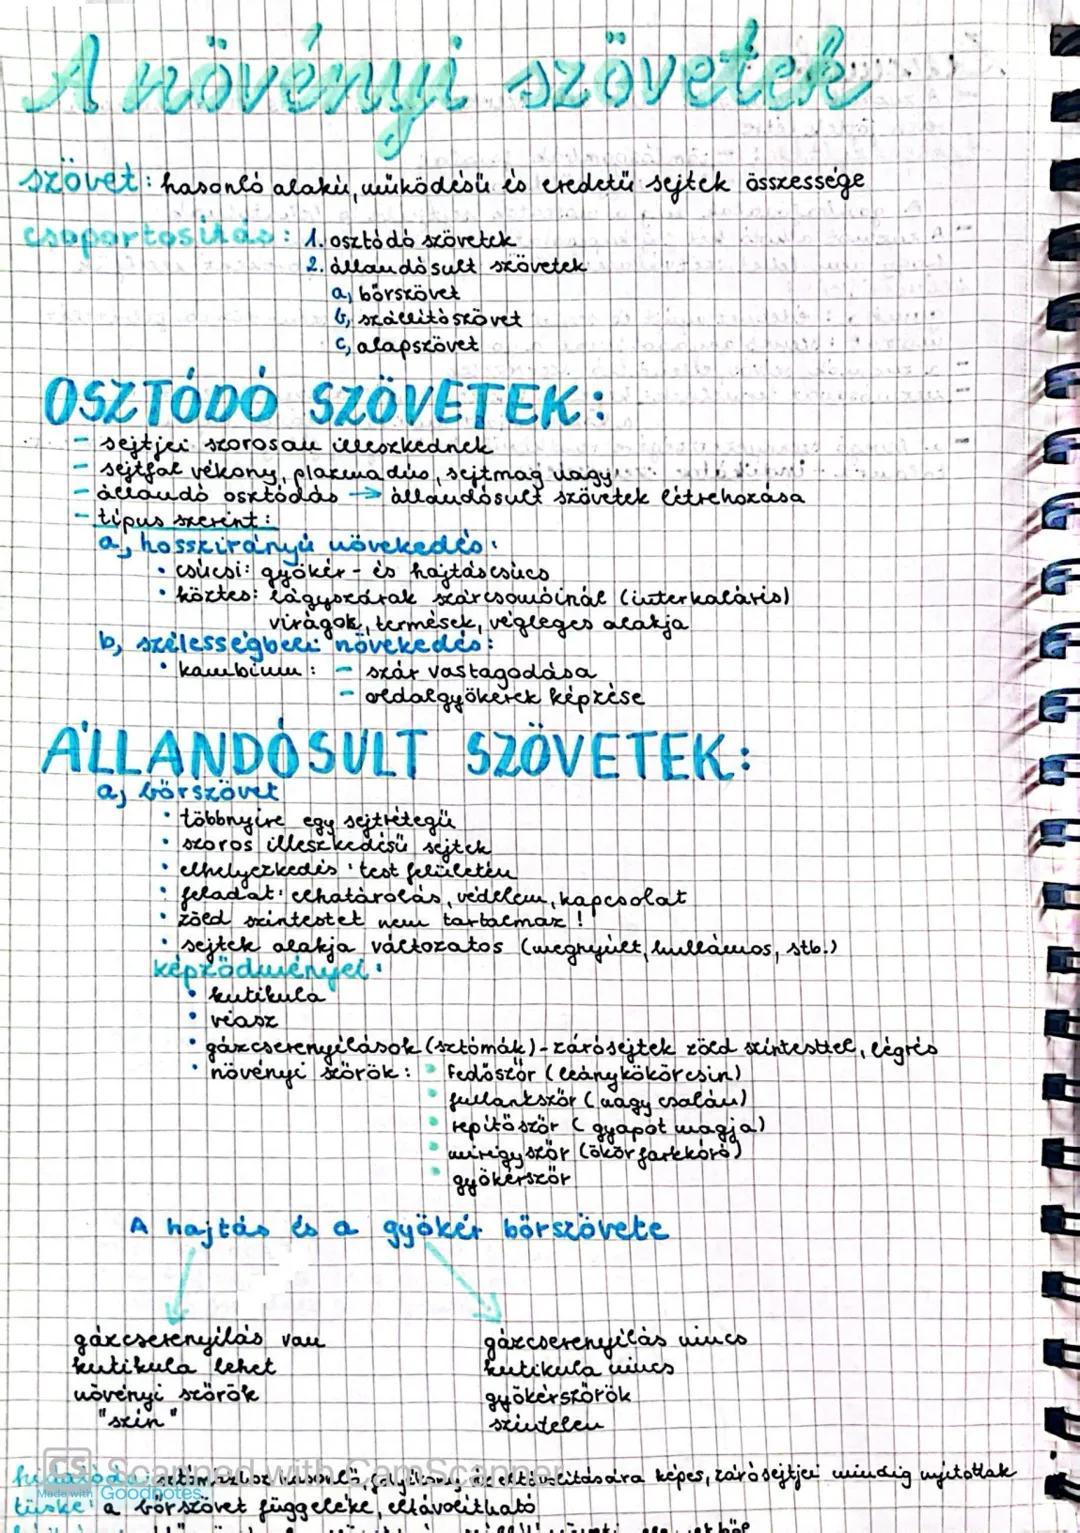 A növényi szövetek
szövet: hasonló alakú, működésű és eredetű sejtek összessége
csoportosítás: 1. osztódó szövetek
2. állandósult szövetek
a, bőrszövet
b, szállítószövet
c, alapszövet
OSZTÓDÓ SZÖVETEK:
- sejtjei szorosan illeszkednek
- sejtfal vékony, plazma dús, sejtmag nagy
- állandó osztódás → állandósult szövetek létrehozása
- típus szerint:
a, hosszirányú növekedés:
• csúcsi: gyökér- és hajtáscsúcs
• köztes: lágyszárúak szárcsomóinál (interkaláris)
virágok, termések, végleges alakja
b, szélességbeli növekedés:
• kambium: - szár vastagodása
- oldalgyökerek képzése
ÁLLANDÓSULT SZÖVETEK:
a, bőrszövet
• többnyire egy sejtrétegű
• szoros illeszkedésű sejtek
• elhelyezkedés: test felületén
• feladat: elhatárolás, védelem, kapcsolat
• zöld színtestet nem tartalmaz!
• sejtek alakja változatos (megnyúlt, hullámos, stb.)
képződményei:
• kutikula
• viasz
• gázcserenyílások (sztómák) - zárósejtek zöld színtesttel, légrés
• növényi szőrök: • fedőszőr (leánykökörcsin)
• fullánkszőr (nagy csalán)
• repítőszőr (gyapot magja)
• mirigyszőr (ökörfarkkóró)
• gyökérszőr
A hajtás és a gyökér bőrszövete
gázcserenyílás van
kutikula lehet
növényi szőrök
"szín"
gázcserenyílás nincs
kutikula nincs
gyökérszőrök
színtelen
CS Scanned with CamScanner
hidatóda: sztómához hasonló, folyékony eltávolítására képes, zárósejtjei mindig nyitottak
Made with Goodnotes
tüske: a bőrszövet függeléke, eltávolítható